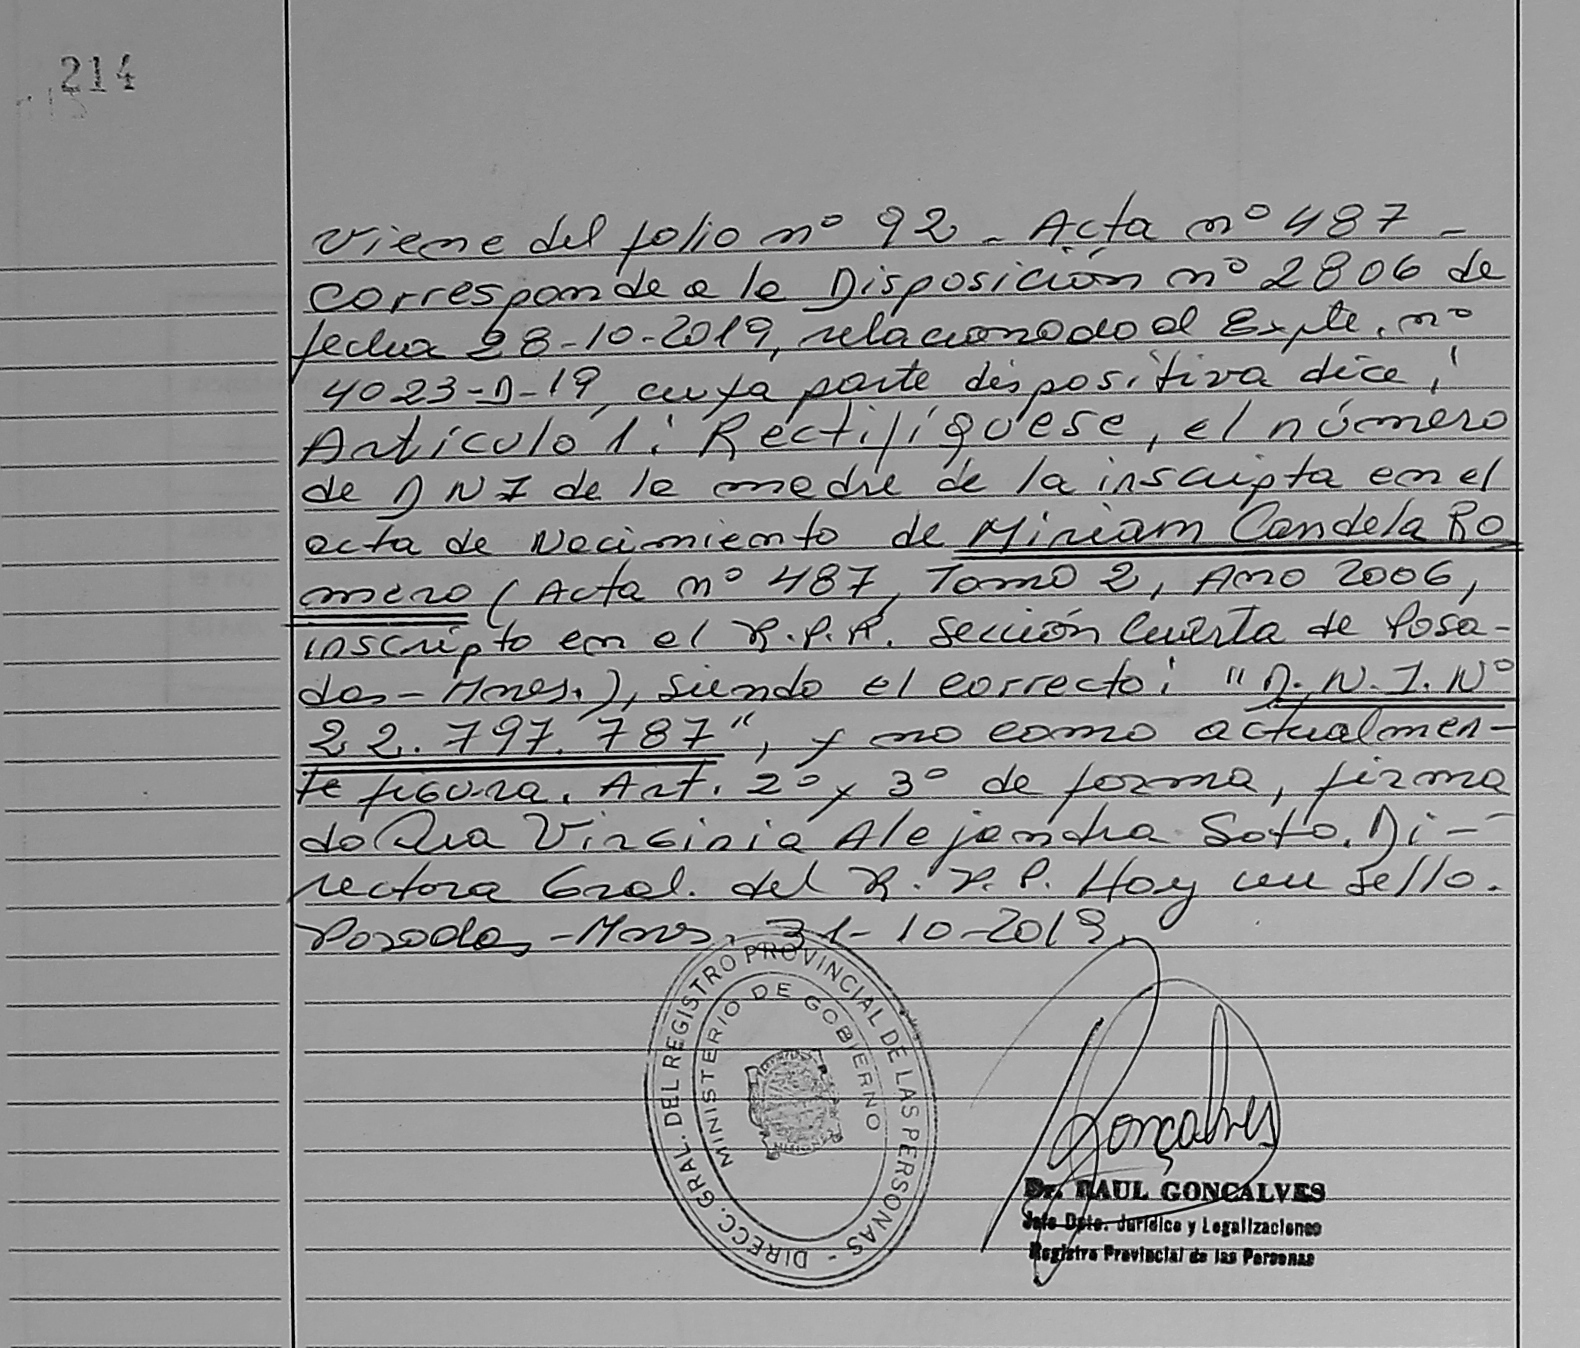 214
Viene del folio nº 92 - Acta nº 487 -
corresponde a la Disposición nº 2806 de
fecha 28-10-2019, relacionado al Expte. nº
4023-D-19, cuya parte dispositiva dice:
Artículo 1: Rectifíquese, el número
de DNI de la madre de la inscripta en el
acta de Nacimiento de Miriam Candela Ro
mero (Acta nº 487, Tomo 2, Año 2006,
inscripto en el R.P.P. Sección Cuarta de Posa-
das - Mnes.), siendo el correcto: "D.N.I. Nº
22.797.787", y no como actualmen-
te figura. Art. 2º y 3º de forma, firma
do Dra Virginia Alejandra Soto. Di-
rectora Gral. del R.P.P. Hay un sello.
Posadas - Mnes. 31-10-2019.
DIRECC. GRAL. DEL REGISTRO PROVINCIAL DE LAS PERSONAS -
MINISTERIO DE GOBIERNO
MISIONES
Gonçalves
Dr. RAUL GONCALVES
Jefe Dpto. Jurídico y Legalizaciones
Registro Provincial de las Personas